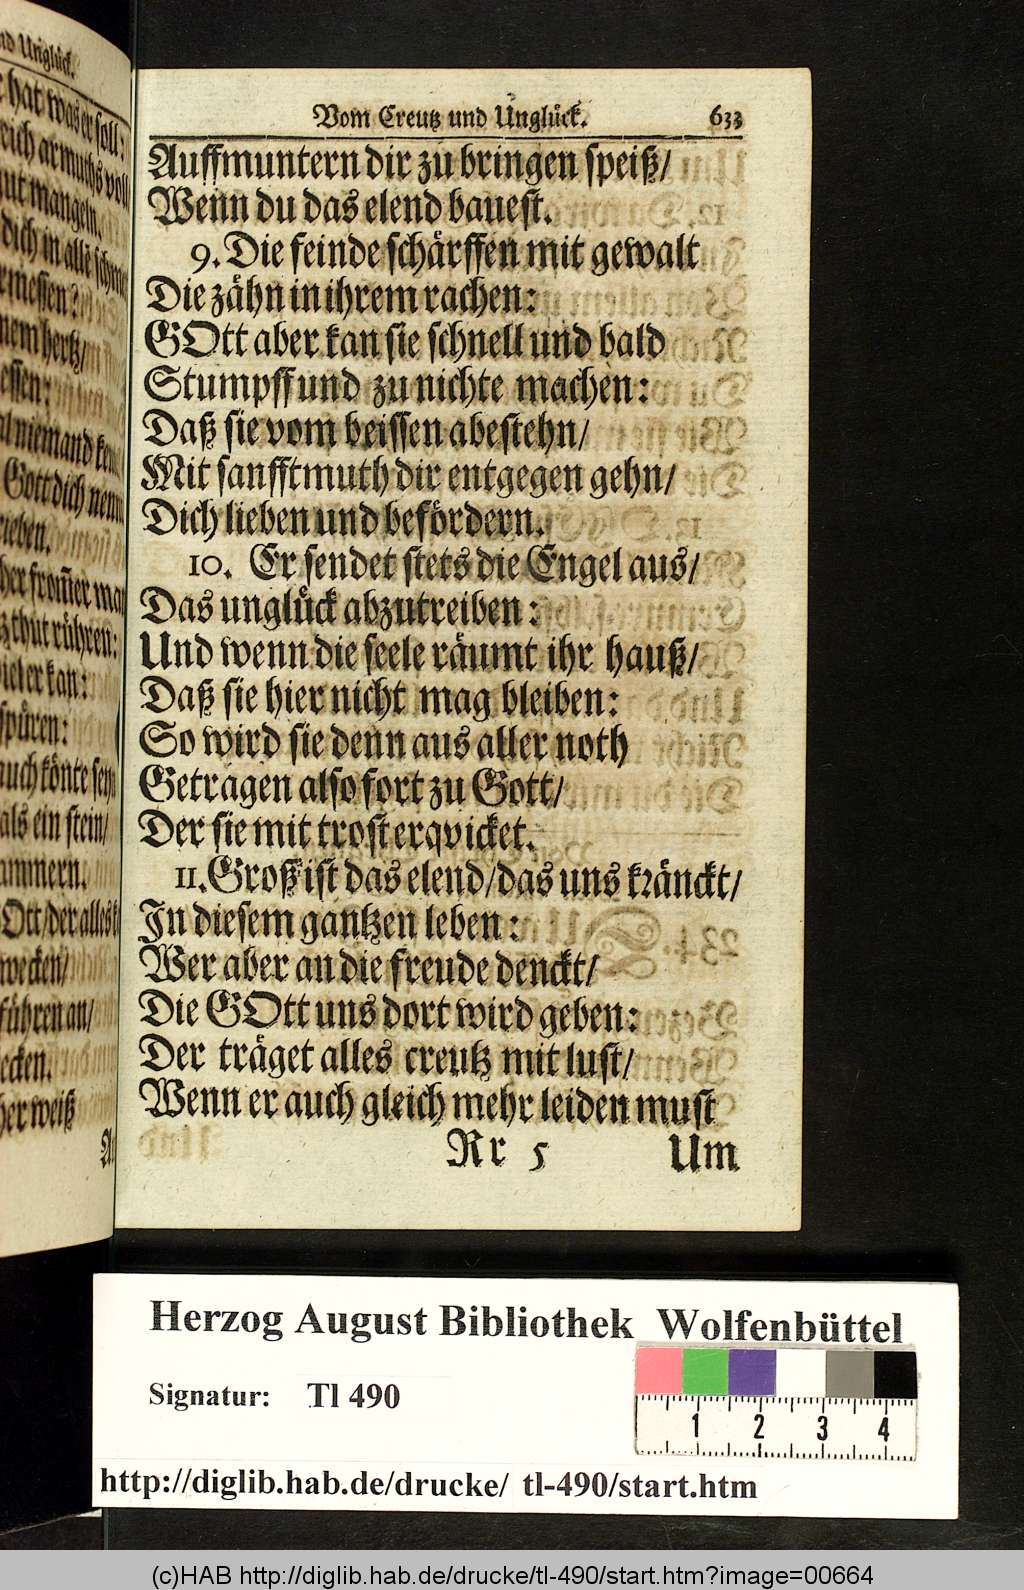 nd Unglück.
hat was er soll:
armuths voll
mangeln.
dich in alle
messen?
hertz/
essen:
niemand
Gott dich
from̃er
thut rühren:
er kan:
spüren:
auch könte
als ein stein/
ammern.
Ott/der alles
wecken/
führen an/
ecken.
her weiß
Vom Creutz und Unglück. 633
Auffmuntern dir zu bringen speiß/
Wenn du das elend bauest.
9. Die feinde schärffen mit gewalt
Die zähn in ihrem rachen:
GOtt aber kan sie schnell und bald
Stumpff und zu nichte machen:
Daß sie vom beissen abestehn/
Mit sanfftmuth dir entgegen gehn/
Dich lieben und befördern.
10. Er sendet stets die Engel aus/
Das unglück abzutreiben:
Und wenn die seele räumt ihr hauß/
Daß sie hier nicht mag bleiben:
So wird sie denn aus aller noth
Getragen also fort zu Gott/
Der sie mit trost erqvicket.
11. Groß ist das elend/das uns kränckt/
In diesem gantzen leben:
Wer aber an die freude denckt/
Die GOtt uns dort wird geben:
Der träget alles creutz mit lust/
Wenn er auch gleich mehr leiden must
Rr 5 Um
Herzog August Bibliothek Wolfenbüttel
Signatur: Tl 490
1 2 3 4
http://diglib.hab.de/drucke/ tl-490/start.htm
(c)HAB http://diglib.hab.de/drucke/tl-490/start.htm?image=00664